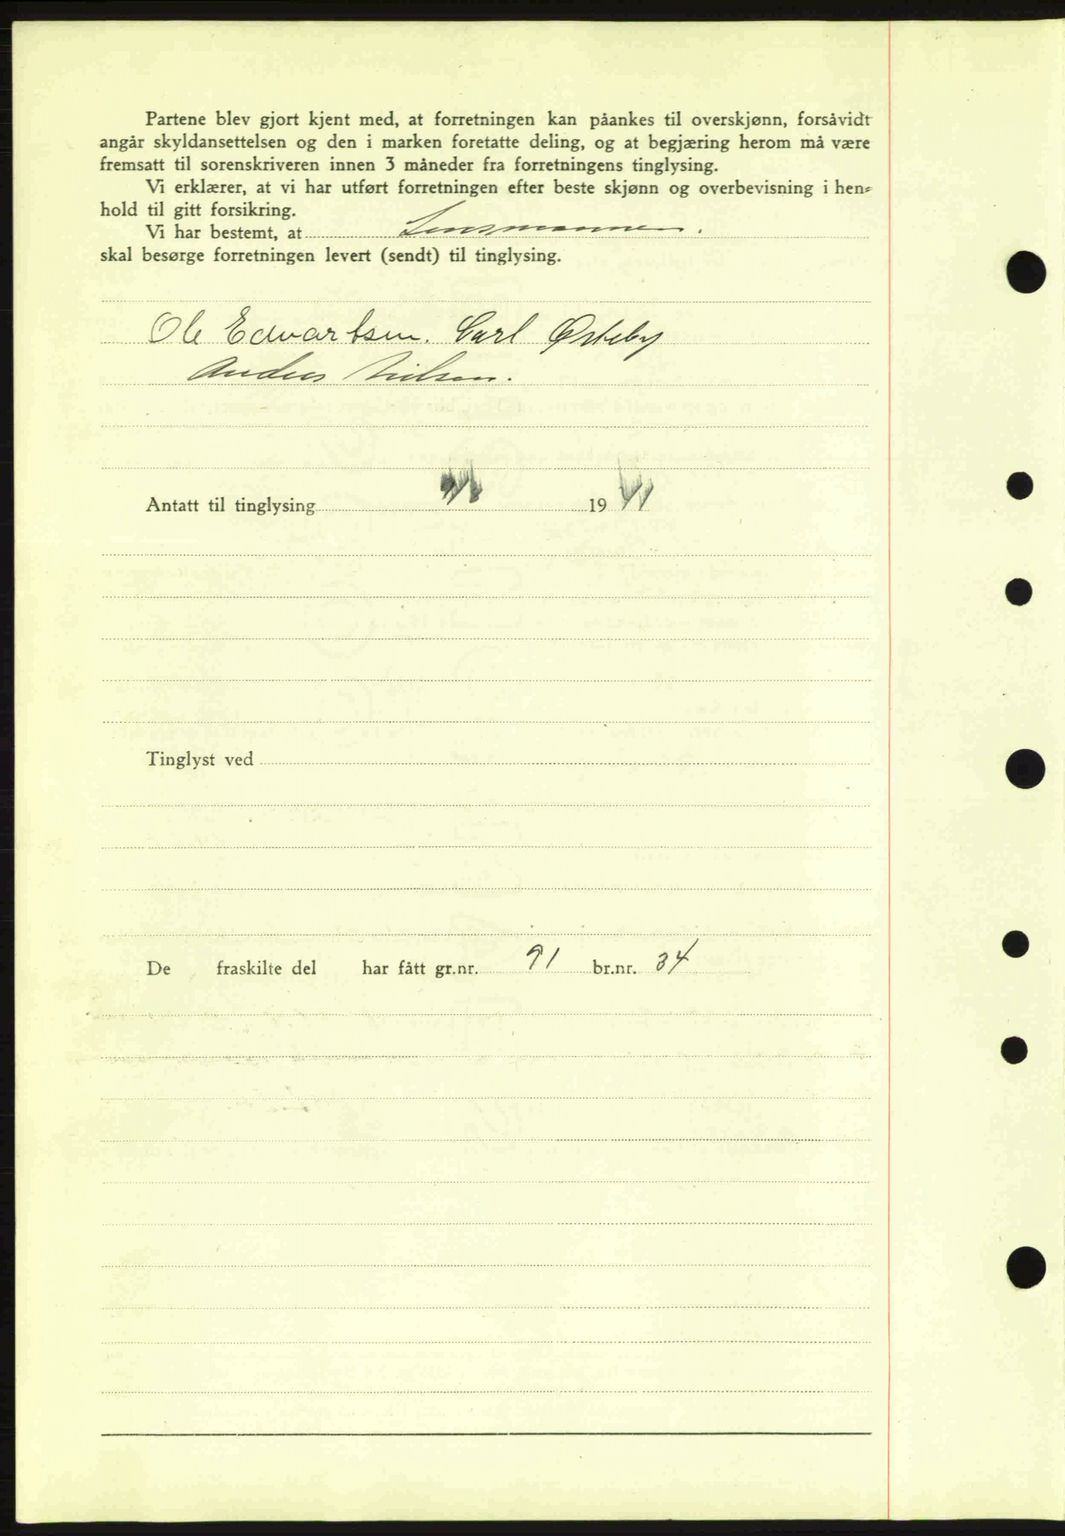 Partene blev gjort kjent med, at forretningen kan påankes til overskjønn, forsåvidt
angår skyldansettelsen og den i marken foretatte deling, og at begjæring herom må være
fremsatt til sorenskriveren innen 3 måneder fra forretningens tinglysing.
Vi erklærer, at vi har utført forretningen efter beste skjønn og overbevisning i hen-
hold til gitt forsikring.
Vi har bestemt, at Lensmannen.
skal besørge forretningen levert (sendt) til tinglysing.
Ole Edvartsen. Carl Østeby
Anders Nilsen.
Antatt til tinglysing 19
Tinglyst ved
De fraskilte del har fått gr.nr. 91 br.nr. 34